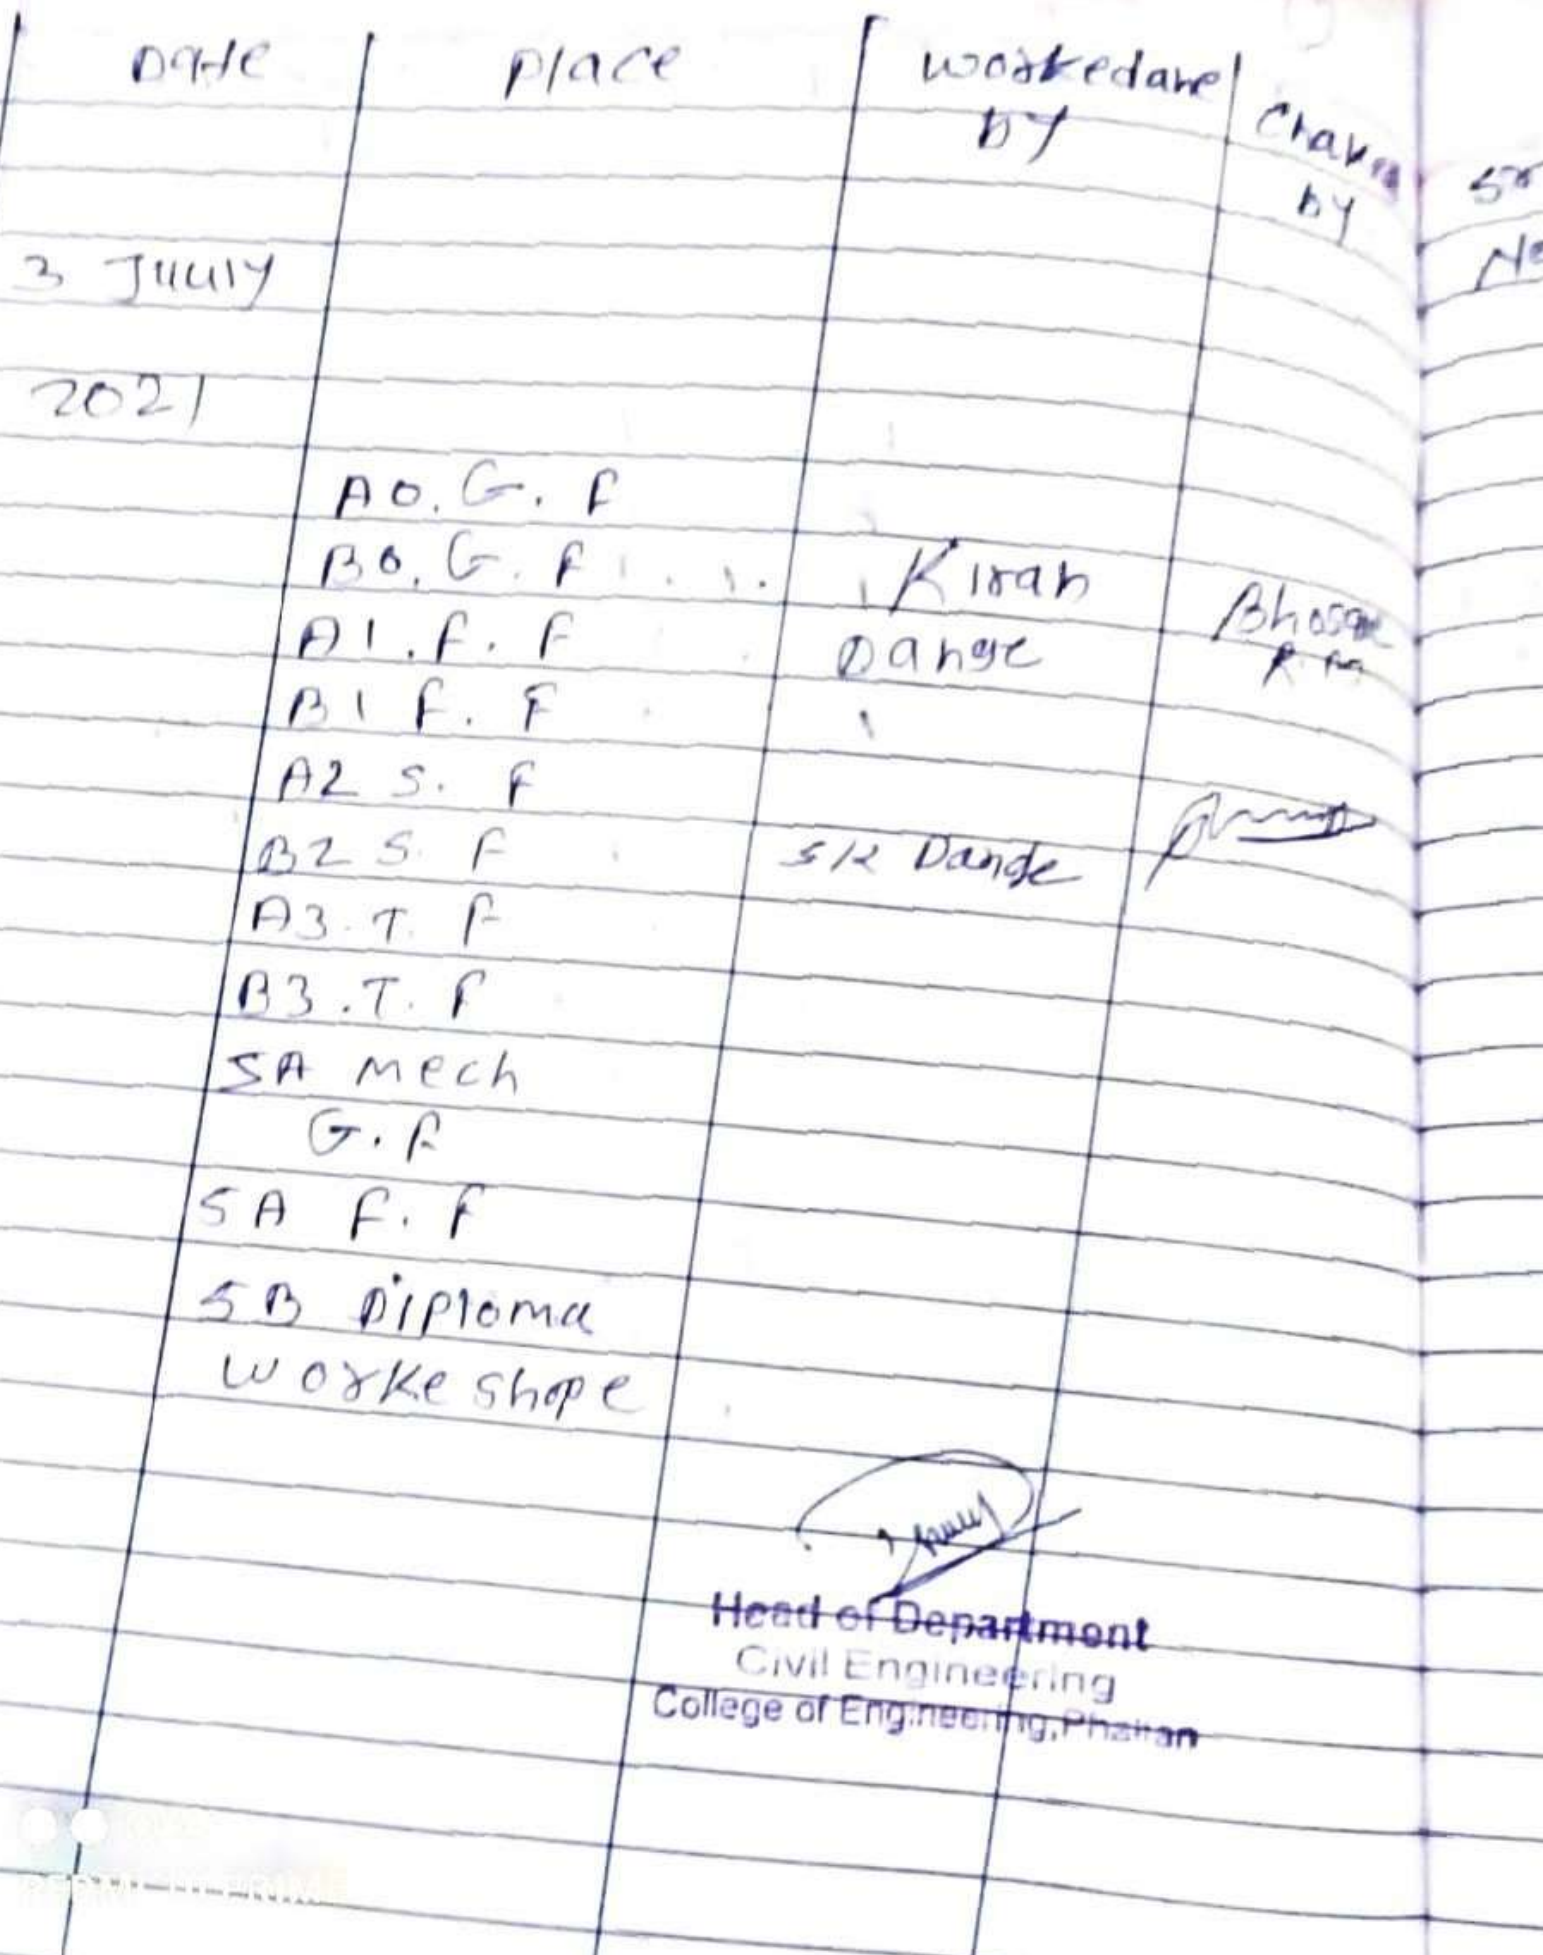 Date place workedane
by
by
3 Juuly
2021
A0. G. F
B0. G. F Kiran
A1. F. F Dange Bhosale
B1 F. F
A2 S. F
B2 S. F SK Dange
A3. T. F
B3. T. F
5A mech
G. F
5A F. F
5B Diploma
workeshope
Head of Department
Civil Engineering
College of Engineering, Phaltan